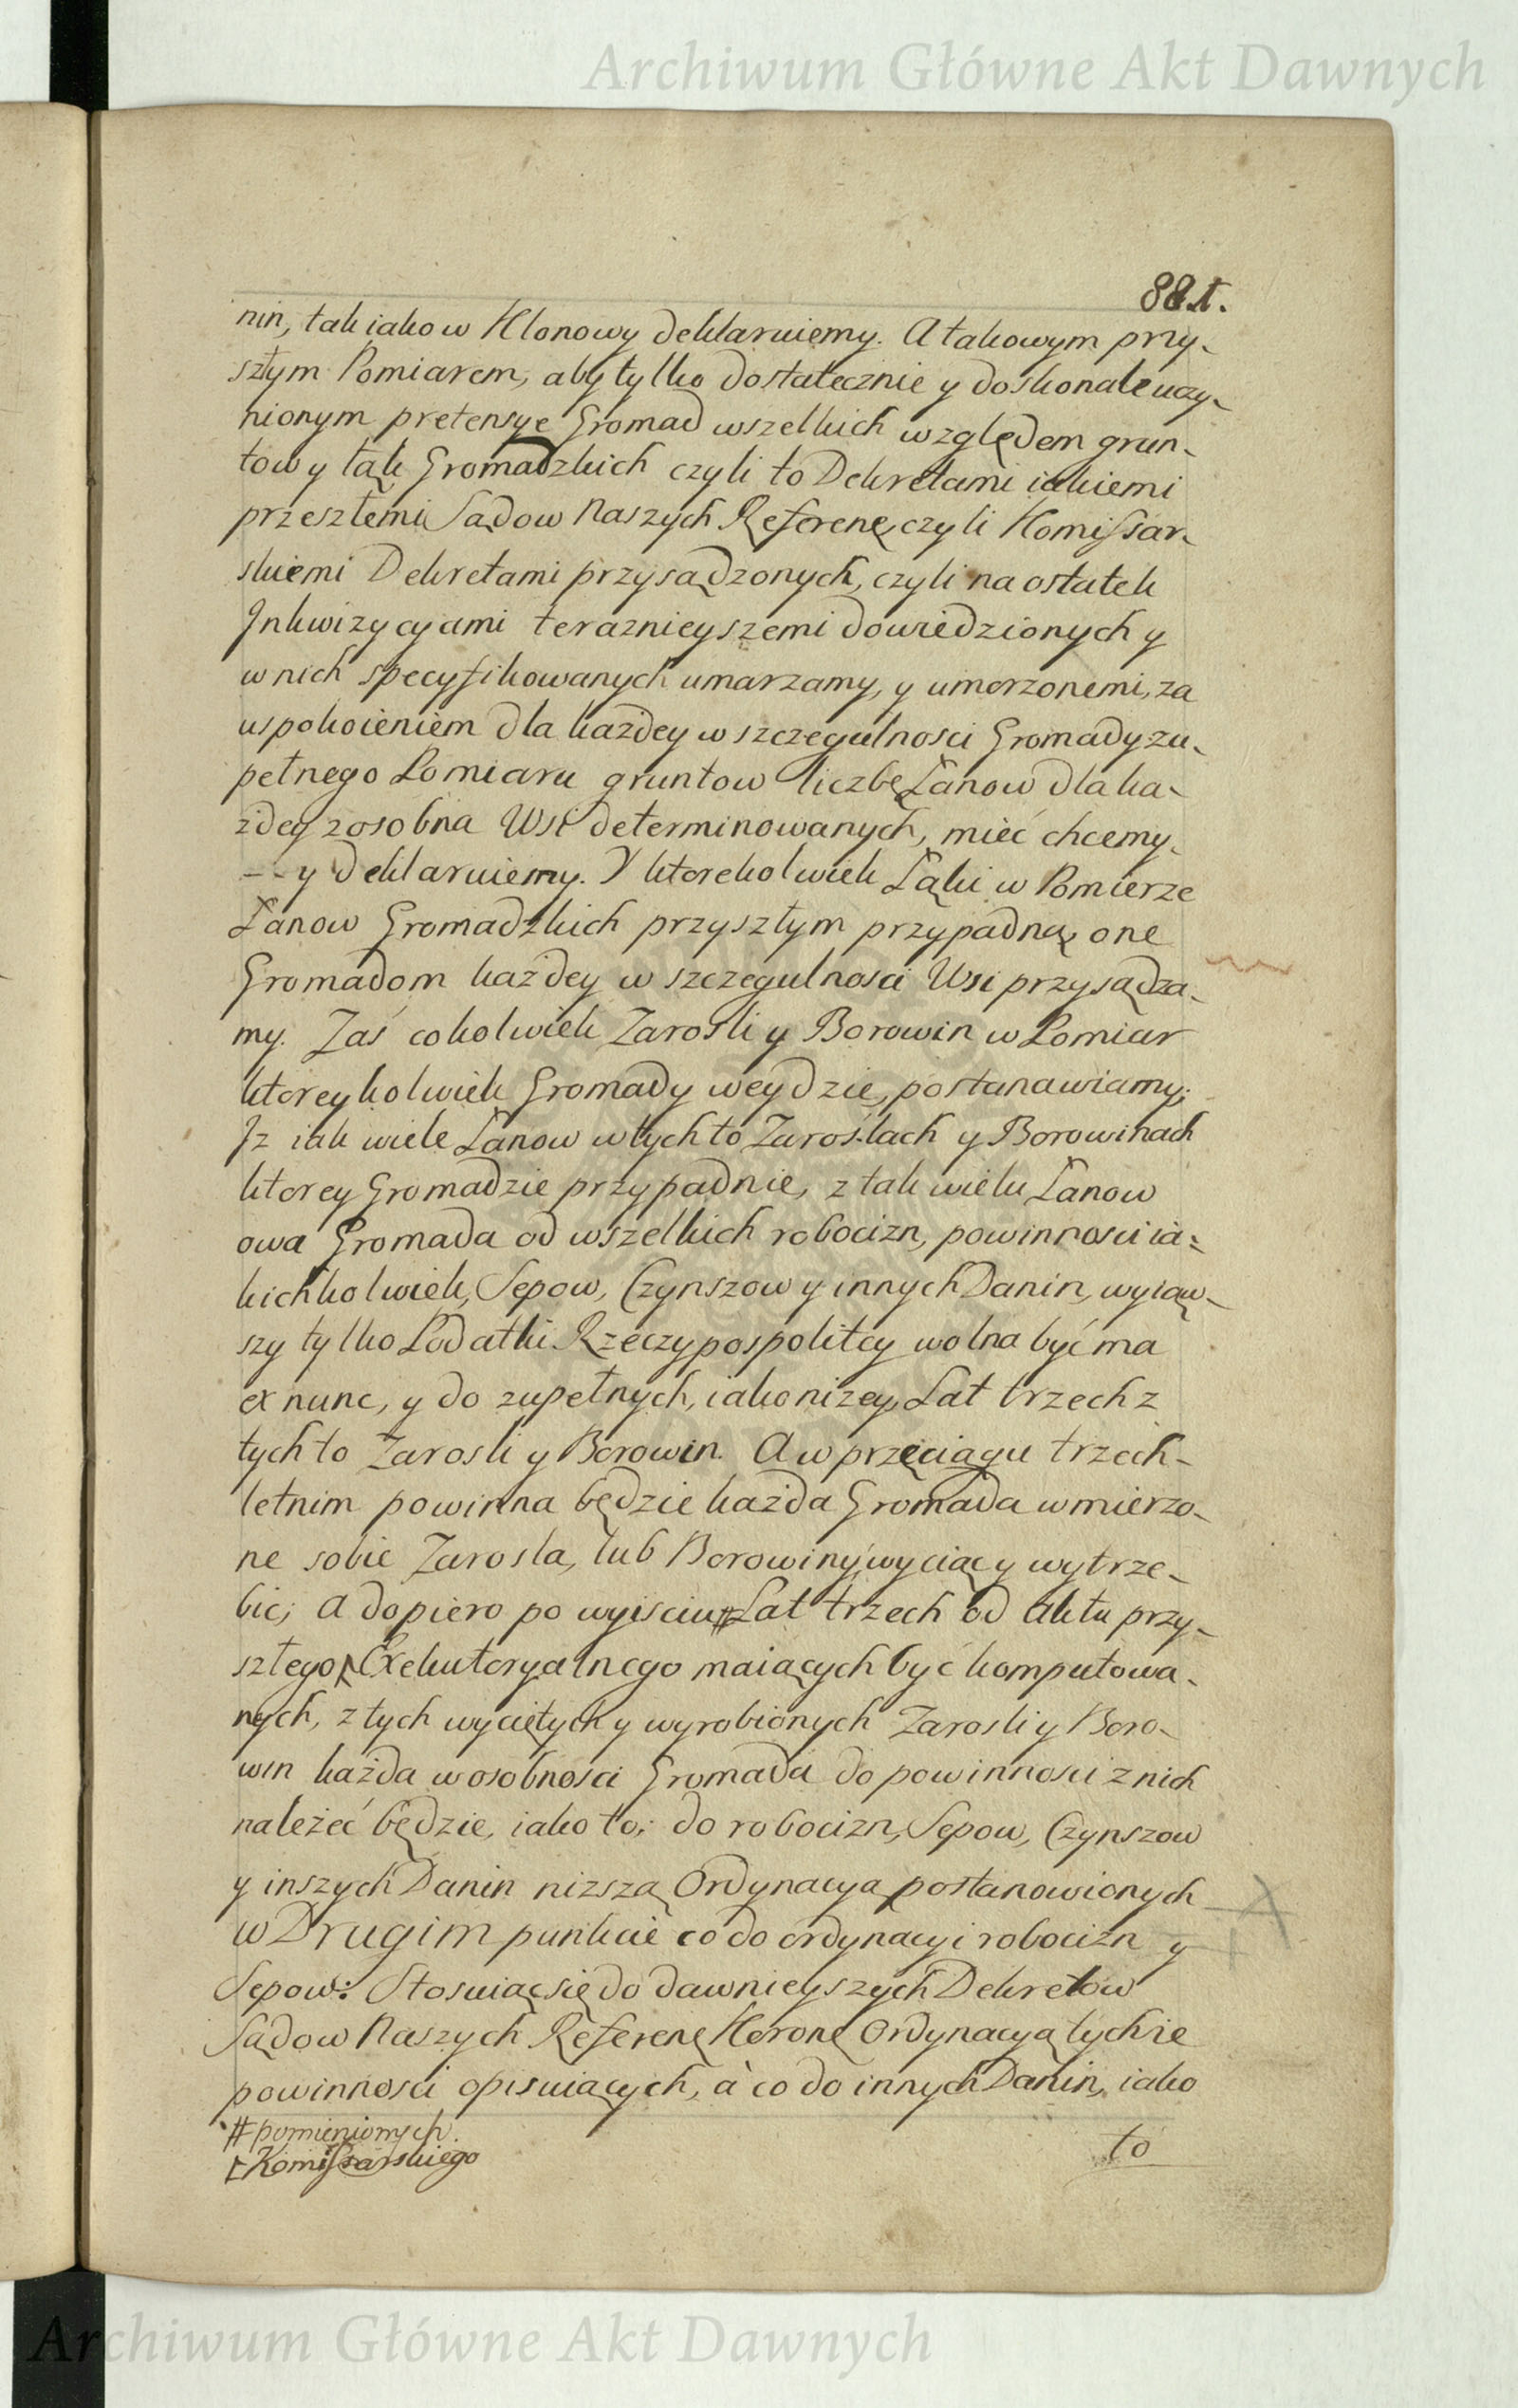 Archiwum Główne Akt Dawnych
881.
nin, tak iako w Klonowy deklaruiemy. A takowym przy-
szłym Pomiarem, aby tylko dostatecznie y doskonale uczy-
nionym pretensye Gromad wszelkich względem grun-
tow y łąk Gromadzkich czyli to Dekretami iakiemi
przeszłemi Sądow Naszych Referen: czyli Komissar-
skiemi Dekretami przysądzonych, czyli na ostatek
Inkwizycyjami teraznieyszemi dowiedzionych y
w nich specyfikowanych umarzamy, y umorzonemi, za
uspokoieniem dla każdey w szczegulnosci Gromady zu-
pełnego Pomiaru gruntow liczbę Łanow dla ka-
żdey zosobna Wsi determinowanych, mieć chcemy
-- y deklaruiemy. Y ktorekolwiek Łąki w Pomierze
Łanow Gromadzkich przyszłym przypadną, one
Gromadom każdey w szczegulnosci Wsi przysądza-
my. Zaś cokolwiek Zarosli y Borowin w Pomiar
ktoreykolwiek Gromady weydzie, postanawiamy;
Iz iak wiele Łanow w tych to Zaroślach y Borowinach
ktorey Gromadzie przypadnie, z tak wielu Łanow
owa Gromada od wszelkich robocizn, powinnosci ia-
kichkolwiek, Sepow, Czynszow y innych Danin, wyiąw-
szy tylko Podatki Rzeczypospolitey wolna być ma
ex nunc, y do zupełnych, iako nizey, Lat trzech z
tych to Zarosli y Borowin. A w przeciągu trzech-
letnim powinna będzie każda Gromada wmierzo-
ne sobie Zarosla, lub Borowiny wyciąc y wytrze-
bic; A dopiero po wyisciu # Lat trzech od Aktu przy-
szłego Exekutoryalnego maiących być komputowa-
nych, z tych wyciętych y wyrobionych Zarosli y Boro-
win każda w osobnosci Gromada do powinnosci z nich
należeć będzie, iako to; do robocizn, Sepow, Czynszow
y inszych Danin nizszą Ordynacyą postanowionych
w Drugim punkcie co do ordynacyi robocizn y
Sepow: Stosuiąc się do dawnieyszych Dekretow
Sądow Naszych Referen: Koron: Ordynacyą tychże
powinnosci opisuiących, à co do innych Danin, iako
# pomienionych.
Komissarskiego
to
Archiwum Główne Akt Dawnych